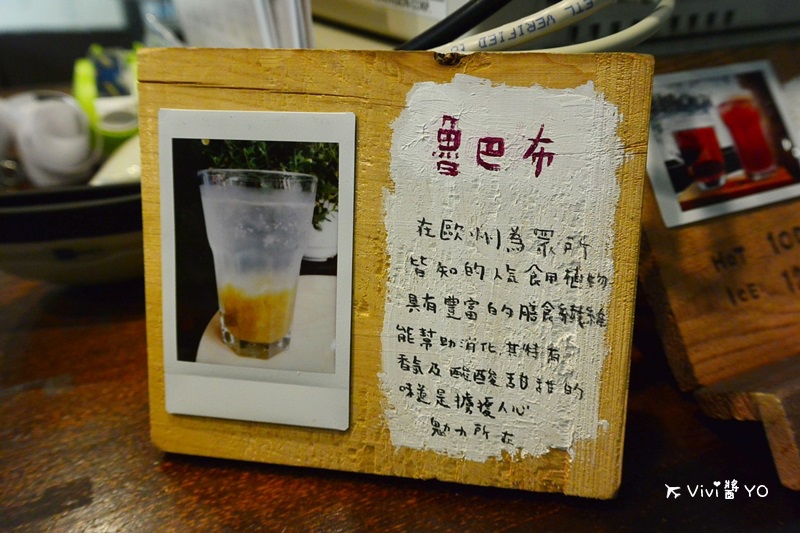 VERIFIED
魯巴布
在歐洲為眾所
皆知的人氣食用植物
具有豐富的膳食纖維
能幫助消化,其特有
香氣及酸酸甜甜的
味道是擄獲人心
魅力所在
HOT 10
ICE 1
Vivi醬YO